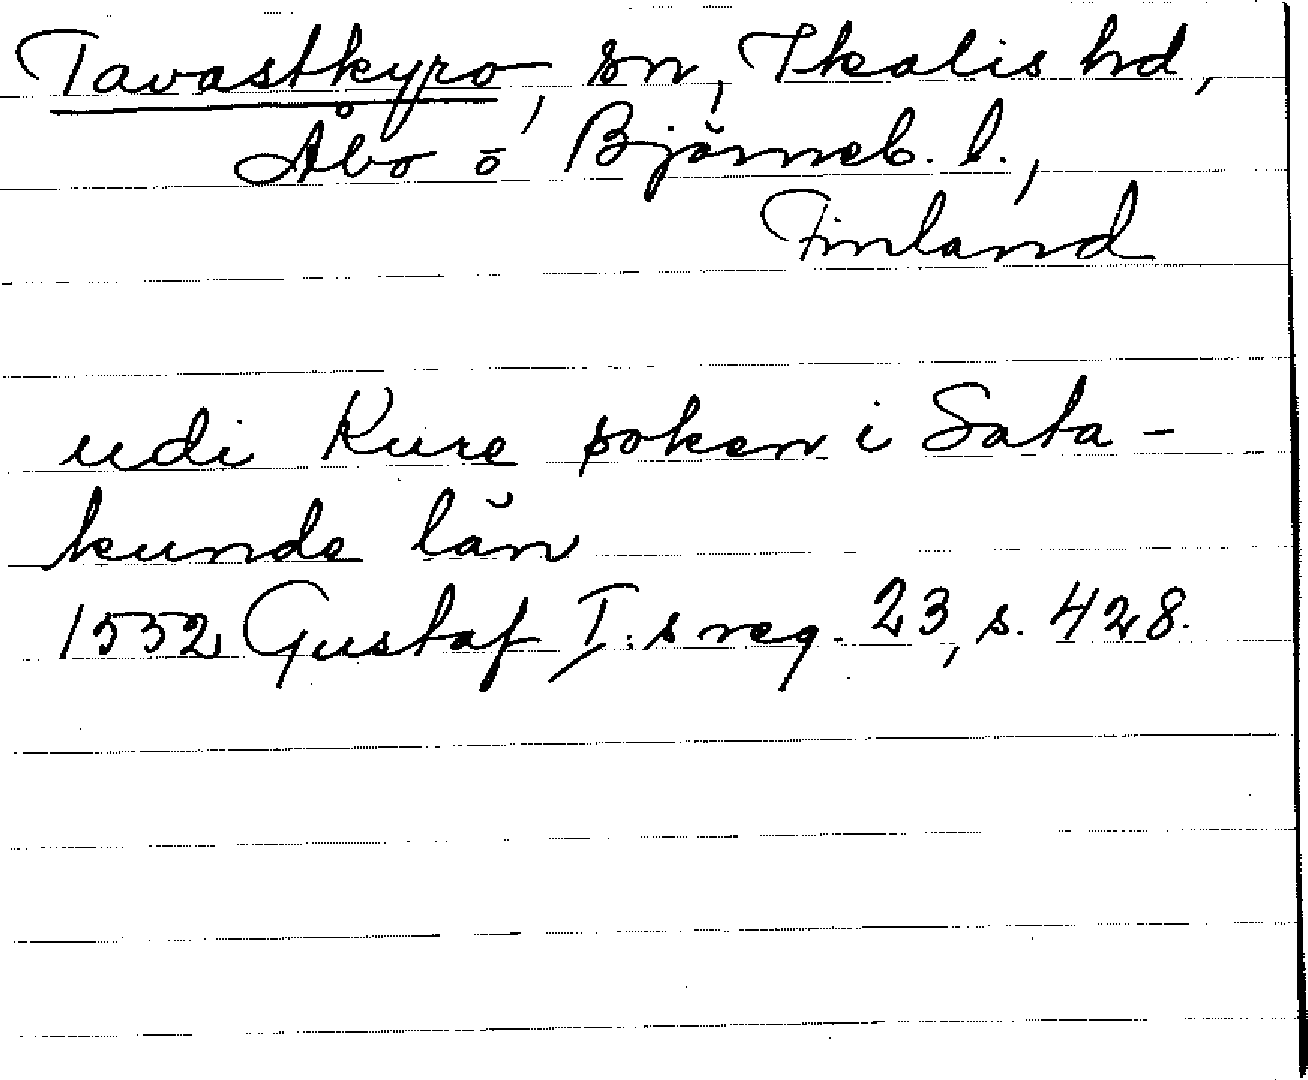 Tavastkyro, sn, Ikalis hd,
Åbo o Björneb. l.,
Finland
udi Kure soken i Sata-
kunde län
1552 Gustaf I:s reg. 23, s. 428.